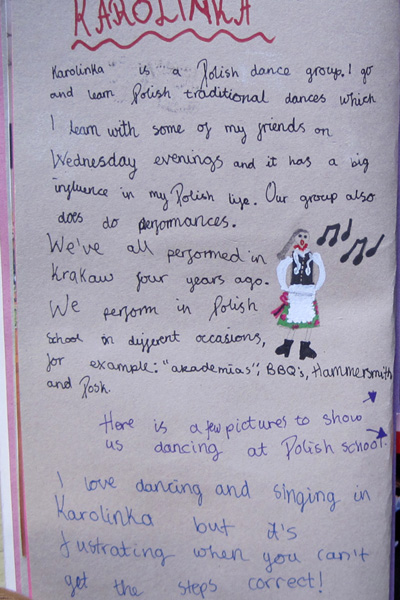 KAROLINKA
Karolinka" is a Polish dance group. I go
and learn Polish traditional dances which
I learn with some of my friends on
Wednesday evenings and it has a big
influence in my Polish life. Our group also
does do performances.
We've all performed in
Krakaw four years ago.
We perform in Polish
school on different occasions,
for example: "akademias", BBQ's, Hammersmith
and Posk.
Here is a few pictures to show
us dancing at Polish school.
I love dancing and singing in
Karolinka but it's
fustrating when you can't
get the steps correct!